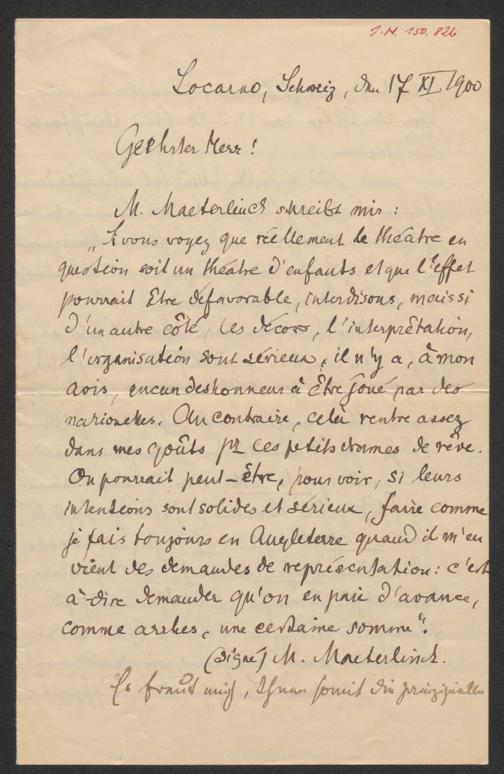 J.N. 150.826
Locarno, Schweiz, den 17 XI 1900
Geehrter Herr!
M. Maeterlinck schreibt mir:
„Si vous voyez que réellement le théâtre en
question soit un théâtre d'enfants et que l'effet
pourrait être défavorable, interdisons, mais si
d'un autre côté, les décors, l'interprêtation,
l'organisation sont sérieux, il n'y a, à mon
avis, aucun deshonneur à être joué par des
marionettes. Au contraire, celà rentre assez
dans mes goûts pr ces petits drames de rêve.
On pourrait peut-être, pour voir, si leurs
intentions sont solides et sérieux, faire comme
je fais toujours en Angleterre quand il m'en
vient des demandes de représentation: c'est
à-dire demander qu'on en paie d'avance,
comme arrhes, une certaine somme".
(signé) M. Maeterlinck.
Es freut mich, Ihnen somit die prinzipielle